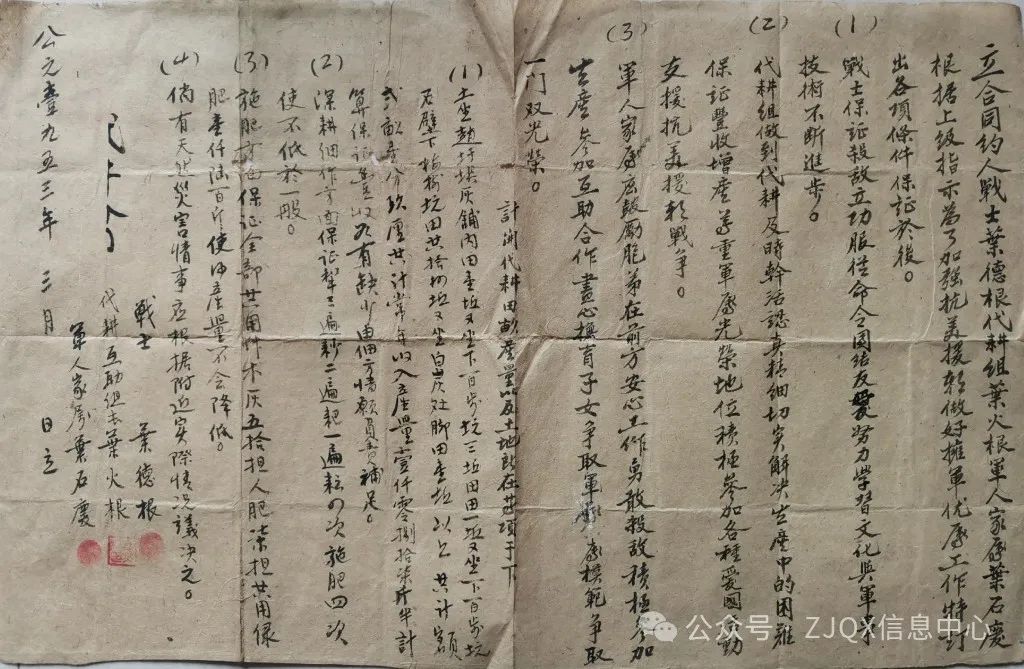 立合同約人戰士葉德根代耕組葉火根軍人家屬葉石慶
根据上級指示為了加强抗美援朝做好擁軍优屬工作特訂
出各項條件保証於後。
(1) 戰士保証殺敌立功服從命令團結友愛努力學習文化與軍事
技術不断進步。
(2) 代耕組做到代耕及時幹活認真精細切实解决生產中的困难
保証豐收增產尊重軍屬光榮地位積極參加各種愛國運動
支援抗美援朝戰爭。
(3) 軍人家屬應鼓勵胞弟在前方安心工作勇敢殺敌積極參加
生產參加互助合作盡心撫育子女爭取軍屬模範爭取
一门双光榮。
計開代耕田畝產量以及土地段在其項于下
(1) 土坐赵圩塔灰舖內田壹坵又坐下一百步坑三坵田一坵又坐下一百步坑
石壁下 坑田廿拾 坵又坐白灰灶脚田壹坵以上共計額
弍畝壹分玖厘共計常年收入產量壹仟零捌拾柒斤半計
算保証豐收如有缺少由佃方情願負責補足。
(2) 深耕細作方面保証犁三遍耖二遍耙一遍耘四次施肥四次
使不低於一般。
(3) 施肥方面保証全部廿一角件木灰五拾担人肥柒担共用糞
肥壹仟陆百斤使田產量不会降低。
(4) 倘有天然災害情事应根据附近实際情况議决之。
戰士 葉德根
代耕互助組長葉火根
軍人家屬葉石慶
公元壹九五三年 三月 日立
公众号 · ZJQX信息中心